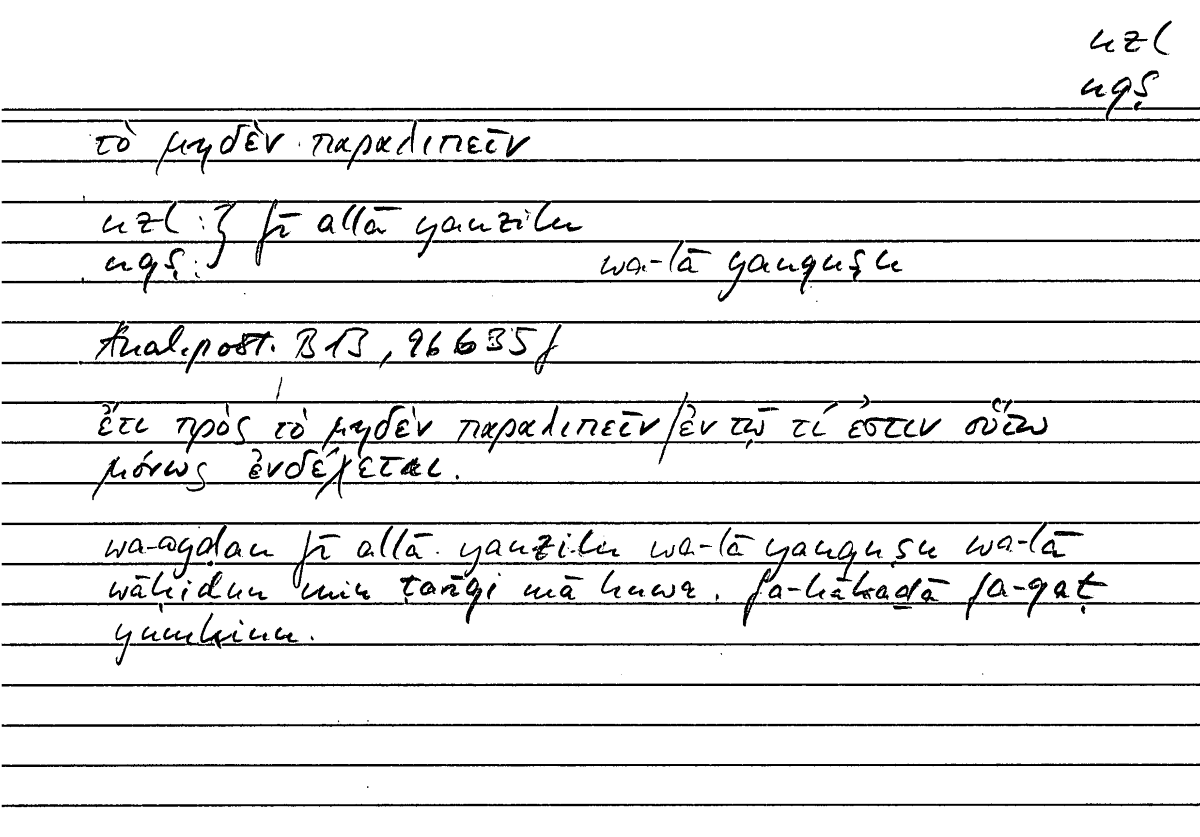 nzl
nqṣ
τὸ μηδὲν παραλιπεῖν
nzl : } fī allā yanzilu
nqṣ : wa-lā yanquṣu
Anal. post. B 13, 96b35f
ἔτι πρὸς τὸ μηδὲν παραλιπεῖν / ἐν τῷ τί ἐστιν οὕτω
μόνως ἐνδέχεται.
wa-ayḍan fī allā yanzilu wa-lā yanquṣu wa-lā
wāḥidun min ṭarīqi mā huwa. fa-hākaḏā fa-qaṭ
yumkinu.